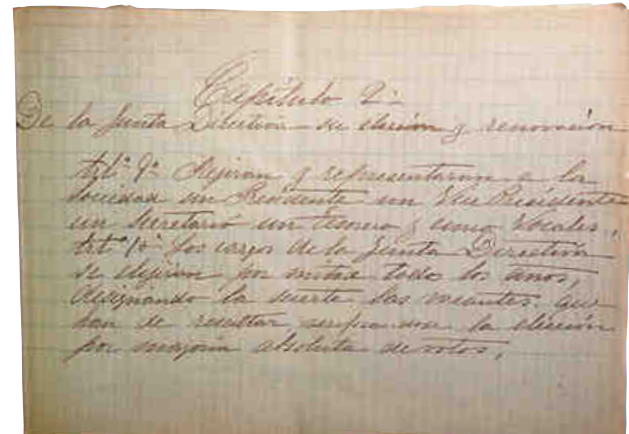 Capítulo 2º
De la Junta Directiva su elección y renovación
Artº 9º Regiran y representaran a la
sociedad un Presidente un Vice Presidente
un Secretario un Tesorero y cinco Vocales.
Artº 10 Los cargos de la Junta Directiva
se elegiran por mitad todos los años,
designando la suerte las vacantes que
han de resultar, verificandose la elección
por mayoria absoluta de votos.